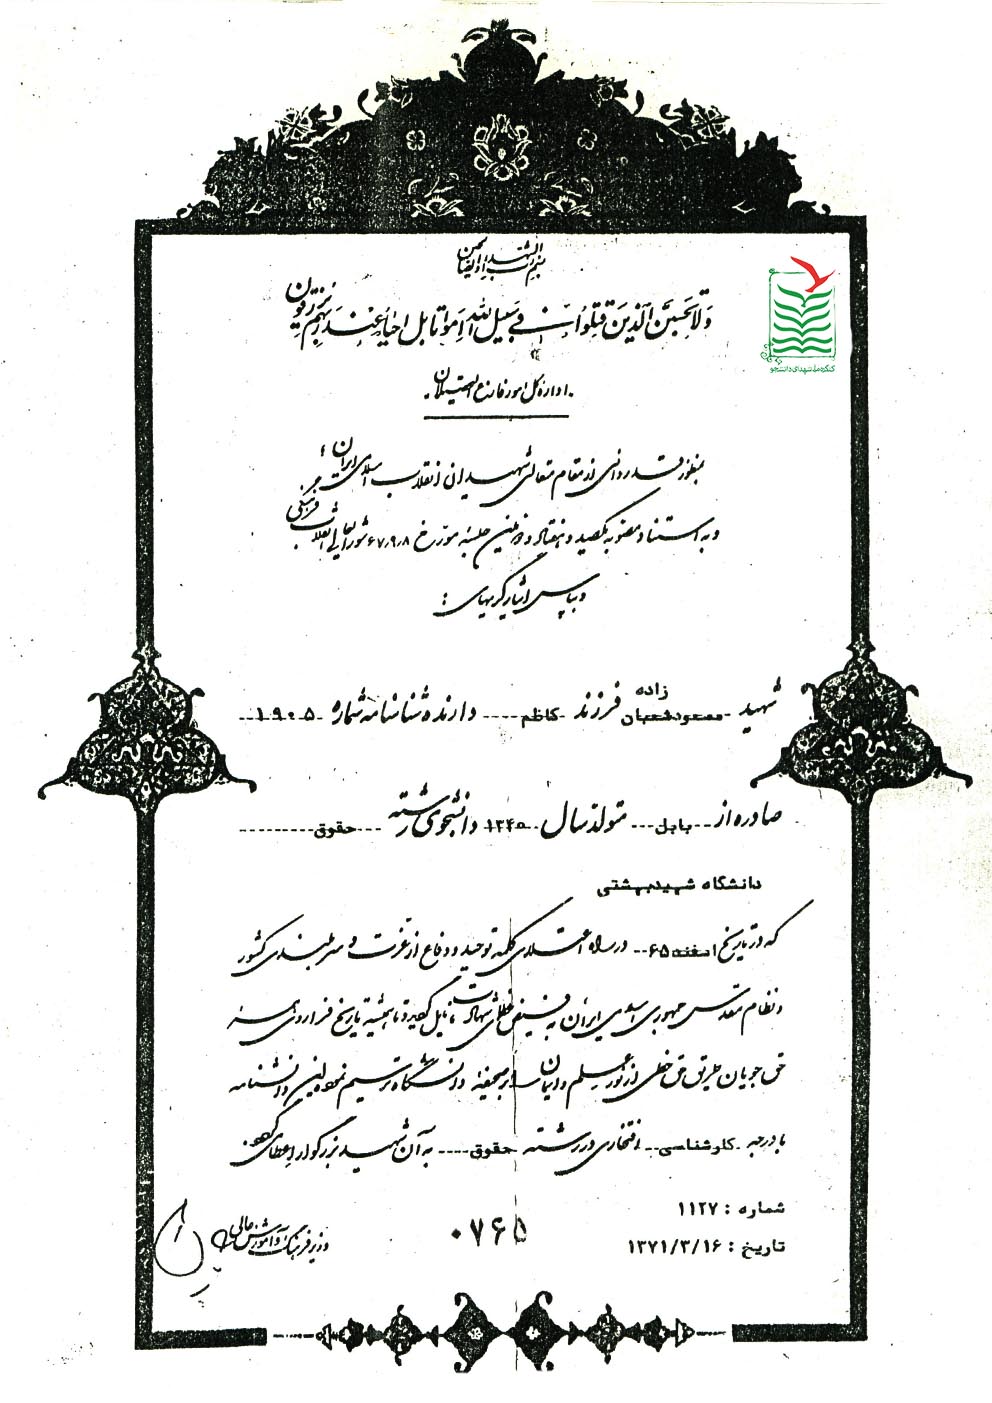 بسم رب الشهداء و الصدیقین
ولا تحسبن الذین قتلوا فی سبیل الله امواتا بل احیاء عند ربهم یرزقون
کنگره ملی شهدای دانشجو
اداره کل امور فارغ التحصیلان
بمنظور قدردانی از مقام متعالی شهیدان انقلاب اسلامی ایران
و به استناد مصوبه یکصد و هفتاد و جلسه مورخ ۶۷/۹/۸ شورایعالی انقلاب فرهنگی
و بپاس ایثارگریهای :
شهید مسعود شعبان زاده فرزند کاظم دارنده شناسنامه شماره ۱۹۰۵
صادره از بابل متولد سال ۱۳۴۵ دانشجوی رشته حقوق
دانشگاه شهید بهشتی
که در تاریخ اسفند ۶۵ در راه اعتلای کلمه توحید و دفاع از عزت و سربلندی کشور
و نظام مقدس جمهوری اسلامی ایران به فیض عظمای شهادت نایل گردید و تا همیشه تاریخ فرا روی همه
حق جویان طریق حق خطی از نور علم و ایمان بر صحیفه دانشگاه ترسیم نمود این دانشنامه
با درجه کارشناسی افتخاری در رشته حقوق به آن شهید بزرگوار اعطا می گردد.
شماره : ۱۱۲۷
تاریخ : ۱۳۷۱/۳/۱۶
۰۷۶۵
وزیر فرهنگ و آموزش عالی